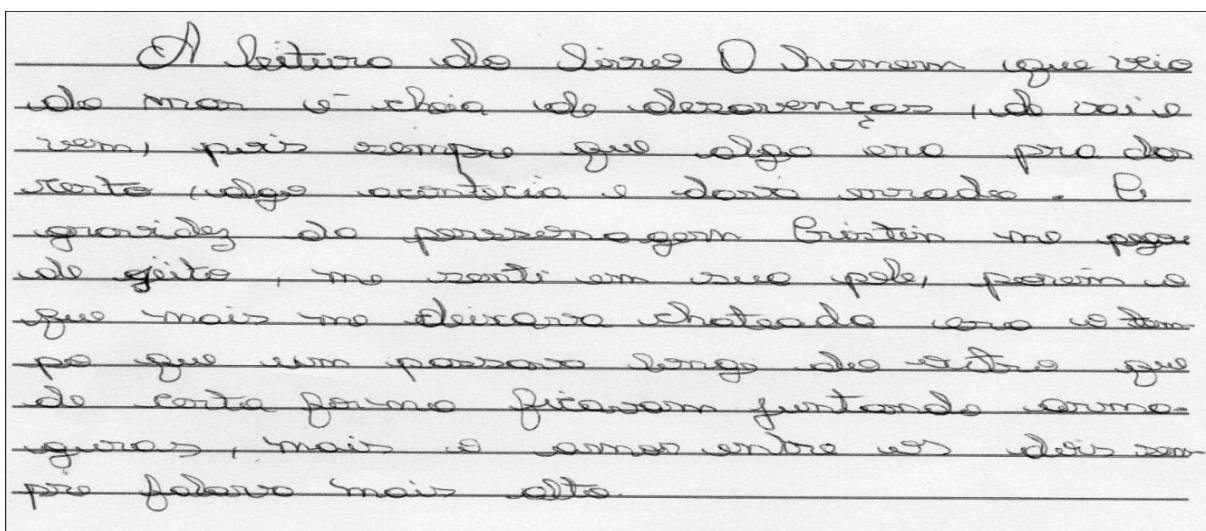 A leitura do livro O homem que veio
do mar é cheia de desavenças, de vai e
vem, pois sempre que algo era pra dar
certo, algo acontecia e dava errado. A
gravidez da personagem Cristin me pegou
de geito, me senti em sua pele, porem o
que mais me deixava chateada era o tem
po que um passava longe do outro que
de certa forma ficavam juntando arma-
guras, mais o amor entre os dois sem
pre falava mais alto.